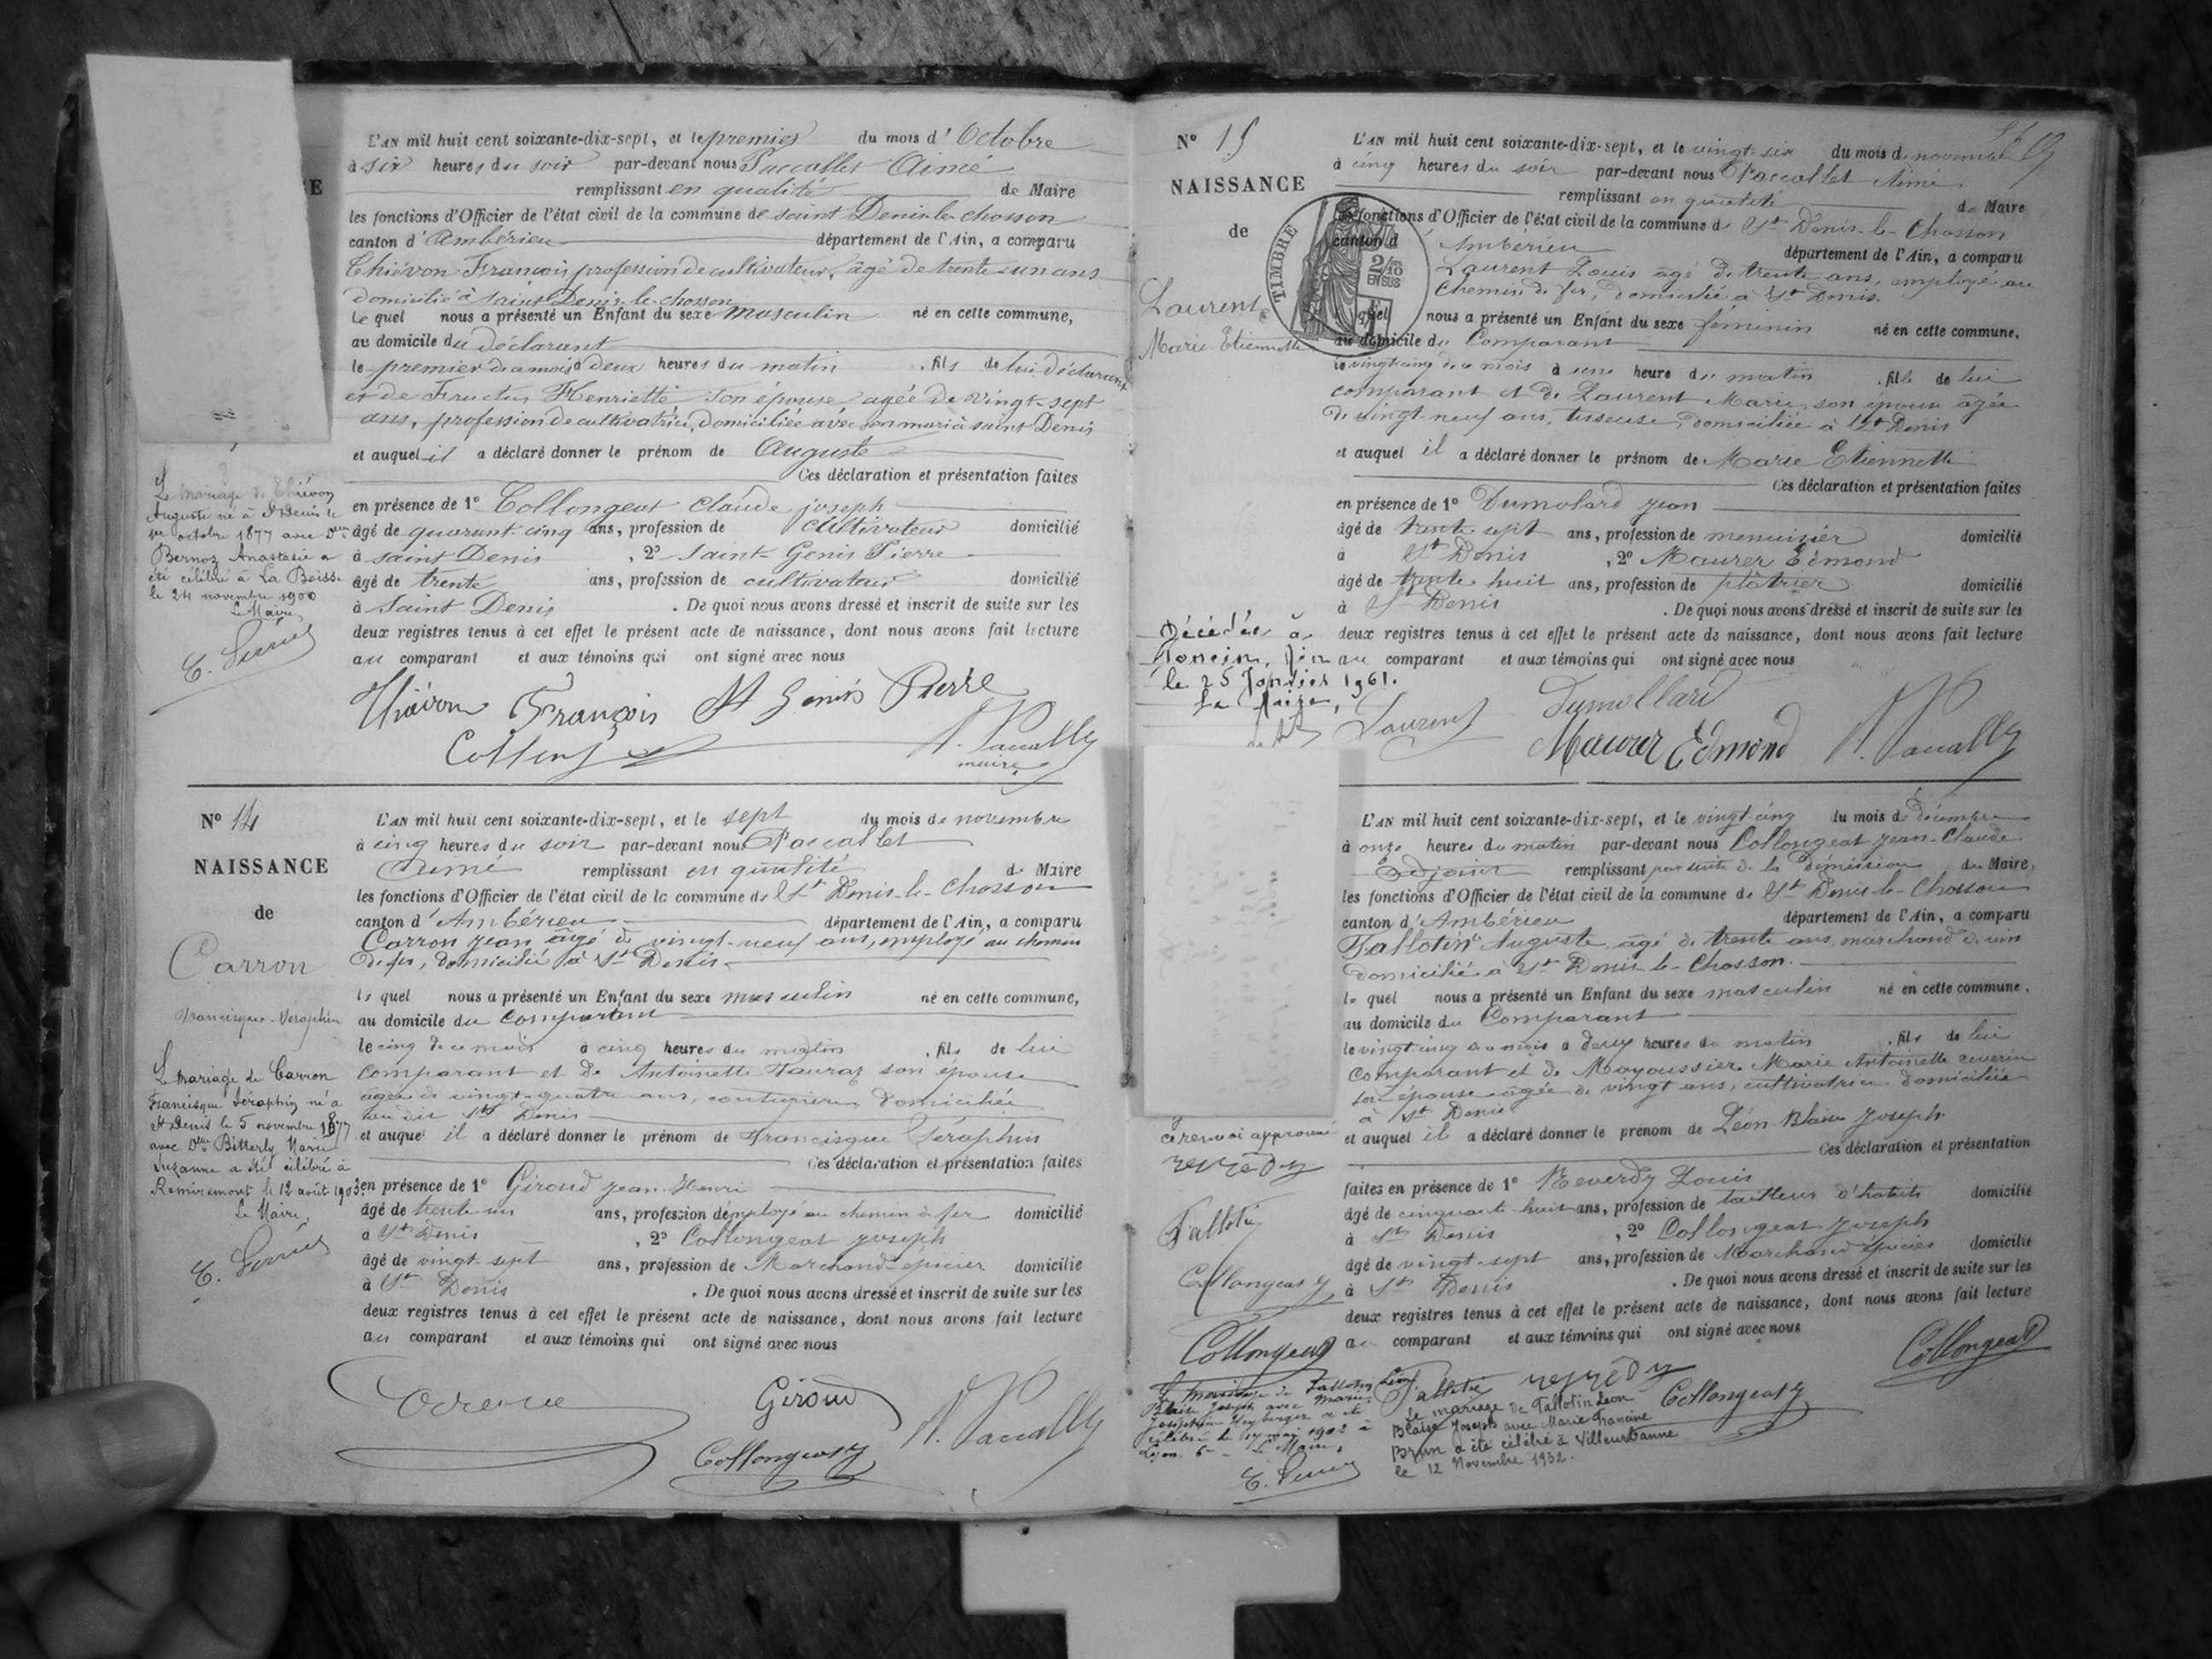 E
L'AN mil huit cent soixante-dix-sept, et le premier du mois d'Octobre
à six heures du soir par-devant nous Paccallet Aimé
remplissant en qualité de Maire
les fonctions d'Officier de l'état civil de la commune de saint Denis-le-chosson
canton d'Ambérieu département de l'Ain, a comparu
Thiévon François profession de cultivateur, âgé de trente un ans
domicilié à Saint Denis-le-chosson
le quel nous a présenté un Enfant du sexe masculin né en cette commune,
au domicile du déclarant
le premier de ce mois à deux heures du matin, fils de lui déclarant
et de Fructus Henriette son épouse agée de vingt-sept
ans, profession de cultivatrice, domiciliée avec son mari à saint Denis
et auquel il a déclaré donner le prénom de Auguste
Ces déclaration et présentation faites
en présence de 1º Collongeat Claude joseph
âgé de quarant-cinq ans, profession de cultivateur domicilié
à saint Denis, 2º Saint Genis Pierre
âgé de trente ans, profession de cultivateur domicilié
à Saint Denis. De quoi nous avons dressé et inscrit de suite sur les
deux registres tenus à cet effet le présent acte de naissance, dont nous avons fait lecture
au comparant et aux témoins qui ont signé avec nous
Thiévon François St Genis Pierre
A. Paccally
maire
Le mariage de Thiévon
Auguste né à St Denis le
1er octobre 1877 avec Dlle
Bernoz Anastasie a
été célébré à La Boisse
le 24 novembre 1900
Le Maire,
Nº 14
NAISSANCE
de
Carron
Francisque-Séraphin
Le mariage de Carron
Francisque Séraphin né à
St Denis le 5 novembre 1877
avec Dlle Bitterly Marie
Suzanne a été célébré à
Remiremont le 12 août 1903.
Le Maire,
L'AN mil huit cent soixante-dix-sept, et le sept du mois de novembre
à cinq heures du soir par-devant nous Paccallet
Aimé remplissant en qualité de Maire
les fonctions d'Officier de l'état civil de la commune de St Denis-le-Chosson
canton d'Ambérieu département de l'Ain, a comparu
Carron Jean âgé de vingt-neuf ans, employé au chemin
de fer, domicilié à St Denis
le quel nous a présenté un Enfant du sexe masculin né en cette commune,
au domicile du Comparant
le cinq de ce mois à cinq heures du matin, fils de lui
comparant et de Antoinette Tauraz son épouse
âgée de vingt-quatre ans, couturière domiciliée
St Denis
et auquel il a déclaré donner le prénom de Francisque Séraphin
Ces déclaration et présentation faites
en présence de 1º Giroud Jean-Henri
âgé de trente un ans, profession d'employé au chemin de fer domicilié
à St Denis, 2º Collongeat Joseph
âgé de vingt-sept ans, profession de Marchand épicier domicilié
à St Denis. De quoi nous avons dressé et inscrit de suite sur les
deux registres tenus à cet effet le présent acte de naissance, dont nous avons fait lecture
au comparant et aux témoins qui ont signé avec nous
Giroud
A. Paccally
Nº 15
NAISSANCE
de
Laurent
Marie Etiennette
TIMBRE
2/10
EN SUS
L'AN mil huit cent soixante-dix-sept, et le vingt-six du mois de novembre
à cinq heures du soir par-devant nous Paccallet Aimé
remplissant en qualité de Maire
les fonctions d'Officier de l'état civil de la commune de St Denis-le-Chosson
canton d'Ambérieu département de l'Ain, a comparu
Laurent Louis âgé de trente ans, employé au
Chemin de fer, domicilié à St Denis.
quel nous a présenté un Enfant du sexe féminin né en cette commune.
au domicile du Comparant
le vingt-cinq de ce mois à une heure du matin, fille de lui
comparant et de Laurent Marie, son épouse âgée
de vingt-neuf ans, tisseuse, domiciliée à St Denis
et auquel il a déclaré donner le prénom de Marie Etiennette
Ces déclaration et présentation faites
en présence de 1º Dumolard Jean
âgé de trente sept ans, profession de menuisier domicilié
à St Denis, 2º Maurer Edmond
âgé de trente huit ans, profession de plâtrier domicilié
à St Denis. De quoi nous avons dressé et inscrit de suite sur les
deux registres tenus à cet effet le présent acte de naissance, dont nous avons fait lecture
au comparant et aux témoins qui ont signé avec nous
Décédée à
le 25 Janvier 1961.
Le Maire,
Laurent Dumollard
Maurer Edmond A. Paccally
L'AN mil huit cent soixante-dix-sept, et le vingt-cinq du mois de décembre
à onze heures du matin par-devant nous Collongeat Jean-Claude
Adjoint remplissant par suite de la démission du Maire,
les fonctions d'Officier de l'état civil de la commune de St Denis-le-Chosson
canton d'Ambérieu département de l'Ain, a comparu
Tallotin Auguste, âgé de trente ans, marchand de vin
domicilié à St Denis-le-Chosson.
le quel nous a présenté un Enfant du sexe masculin né en cette commune,
au domicile du Comparant
le vingt-cinq de ce mois à deux heures du matin, fils de lui
Comparant et de Mayoussier Marie Antoinette
son épouse âgée de vingt ans, cultivatrice domiciliée
à St Denis
et auquel il a déclaré donner le prénom de Léon Blaise Joseph
Ces déclaration et présentation
faites en présence de 1º Reverdy Louis
âgé de cinquante huit ans, profession de tailleur d'habits domicilié
à St Denis, 2º Collongeat Joseph
âgé de vingt-sept ans, profession de Marchand épicier domicilié
à St Denis. De quoi nous avons dressé et inscrit de suite sur les
deux registres tenus à cet effet le présent acte de naissance, dont nous avons fait lecture
au comparant et aux témoins qui ont signé avec nous
ce renvoi approuvé
reverdy
Collongeat
Collongeat
Le mariage de Tallotin Léon
Blaise Joseph avec Marie
Joséphine Heyberger a été
célébré le 17 mai 1902 à
Lyon 6e - Le Maire,
reverdy Collongeat
Le mariage de Tallotin Léon
Blaise Joseph avec Marie Francine
Brun a été célébré à Villeurbanne
le 12 Novembre 1932.